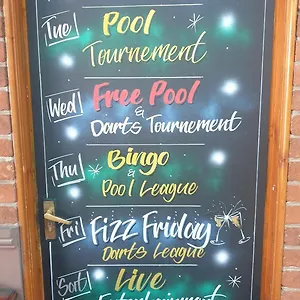 Tue
Pool
Tournement
Wed
Free Pool
&
Darts Tournement
Thu
Bingo
&
Pool League
Fri
Fizz Friday
Darts League
Sat
Live
Entertainment